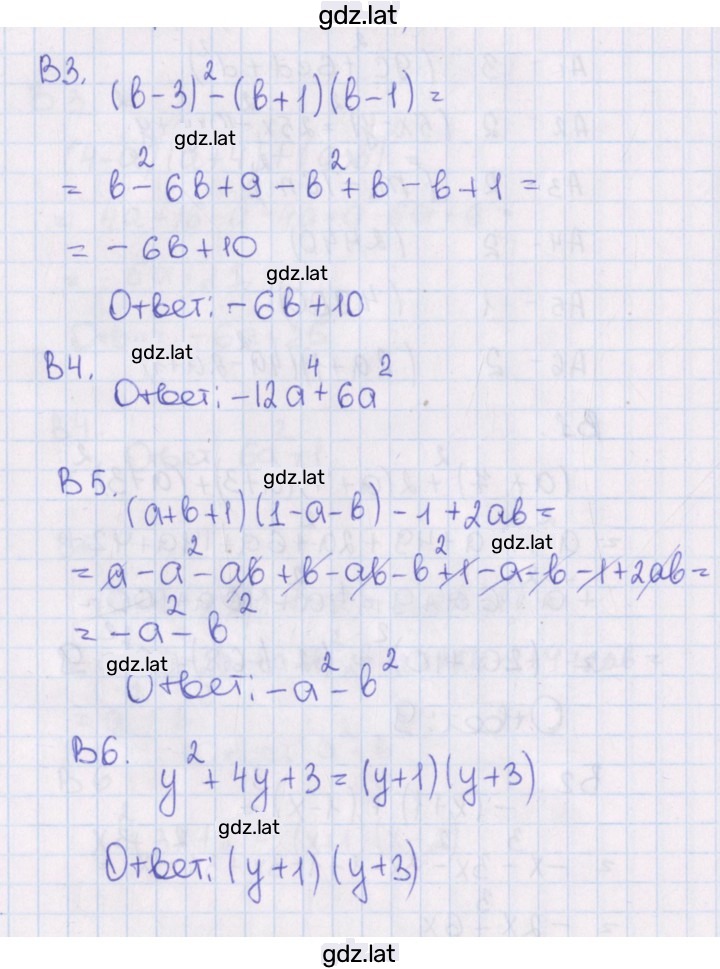 gdz.lat
В3. (в-3)²-(в+1)(в-1)=
gdz.lat
= в²-6в+9-в²+в-в+1=
= -6в+10
gdz.lat
Ответ: -6в+10
gdz.lat
В4. Ответ: -12a⁴+6a²
gdz.lat
В5. (a+в+1)(1-a-в)-1+2aв=
gdz.lat
= a-a²-aв+в-aв-в²+1-a-в-1+2aв=
= -a²-в²
gdz.lat
Ответ: -a²-в²
В6. y²+4y+3=(y+1)(y+3)
gdz.lat
Ответ: (y+1)(y+3)
gdz.lat